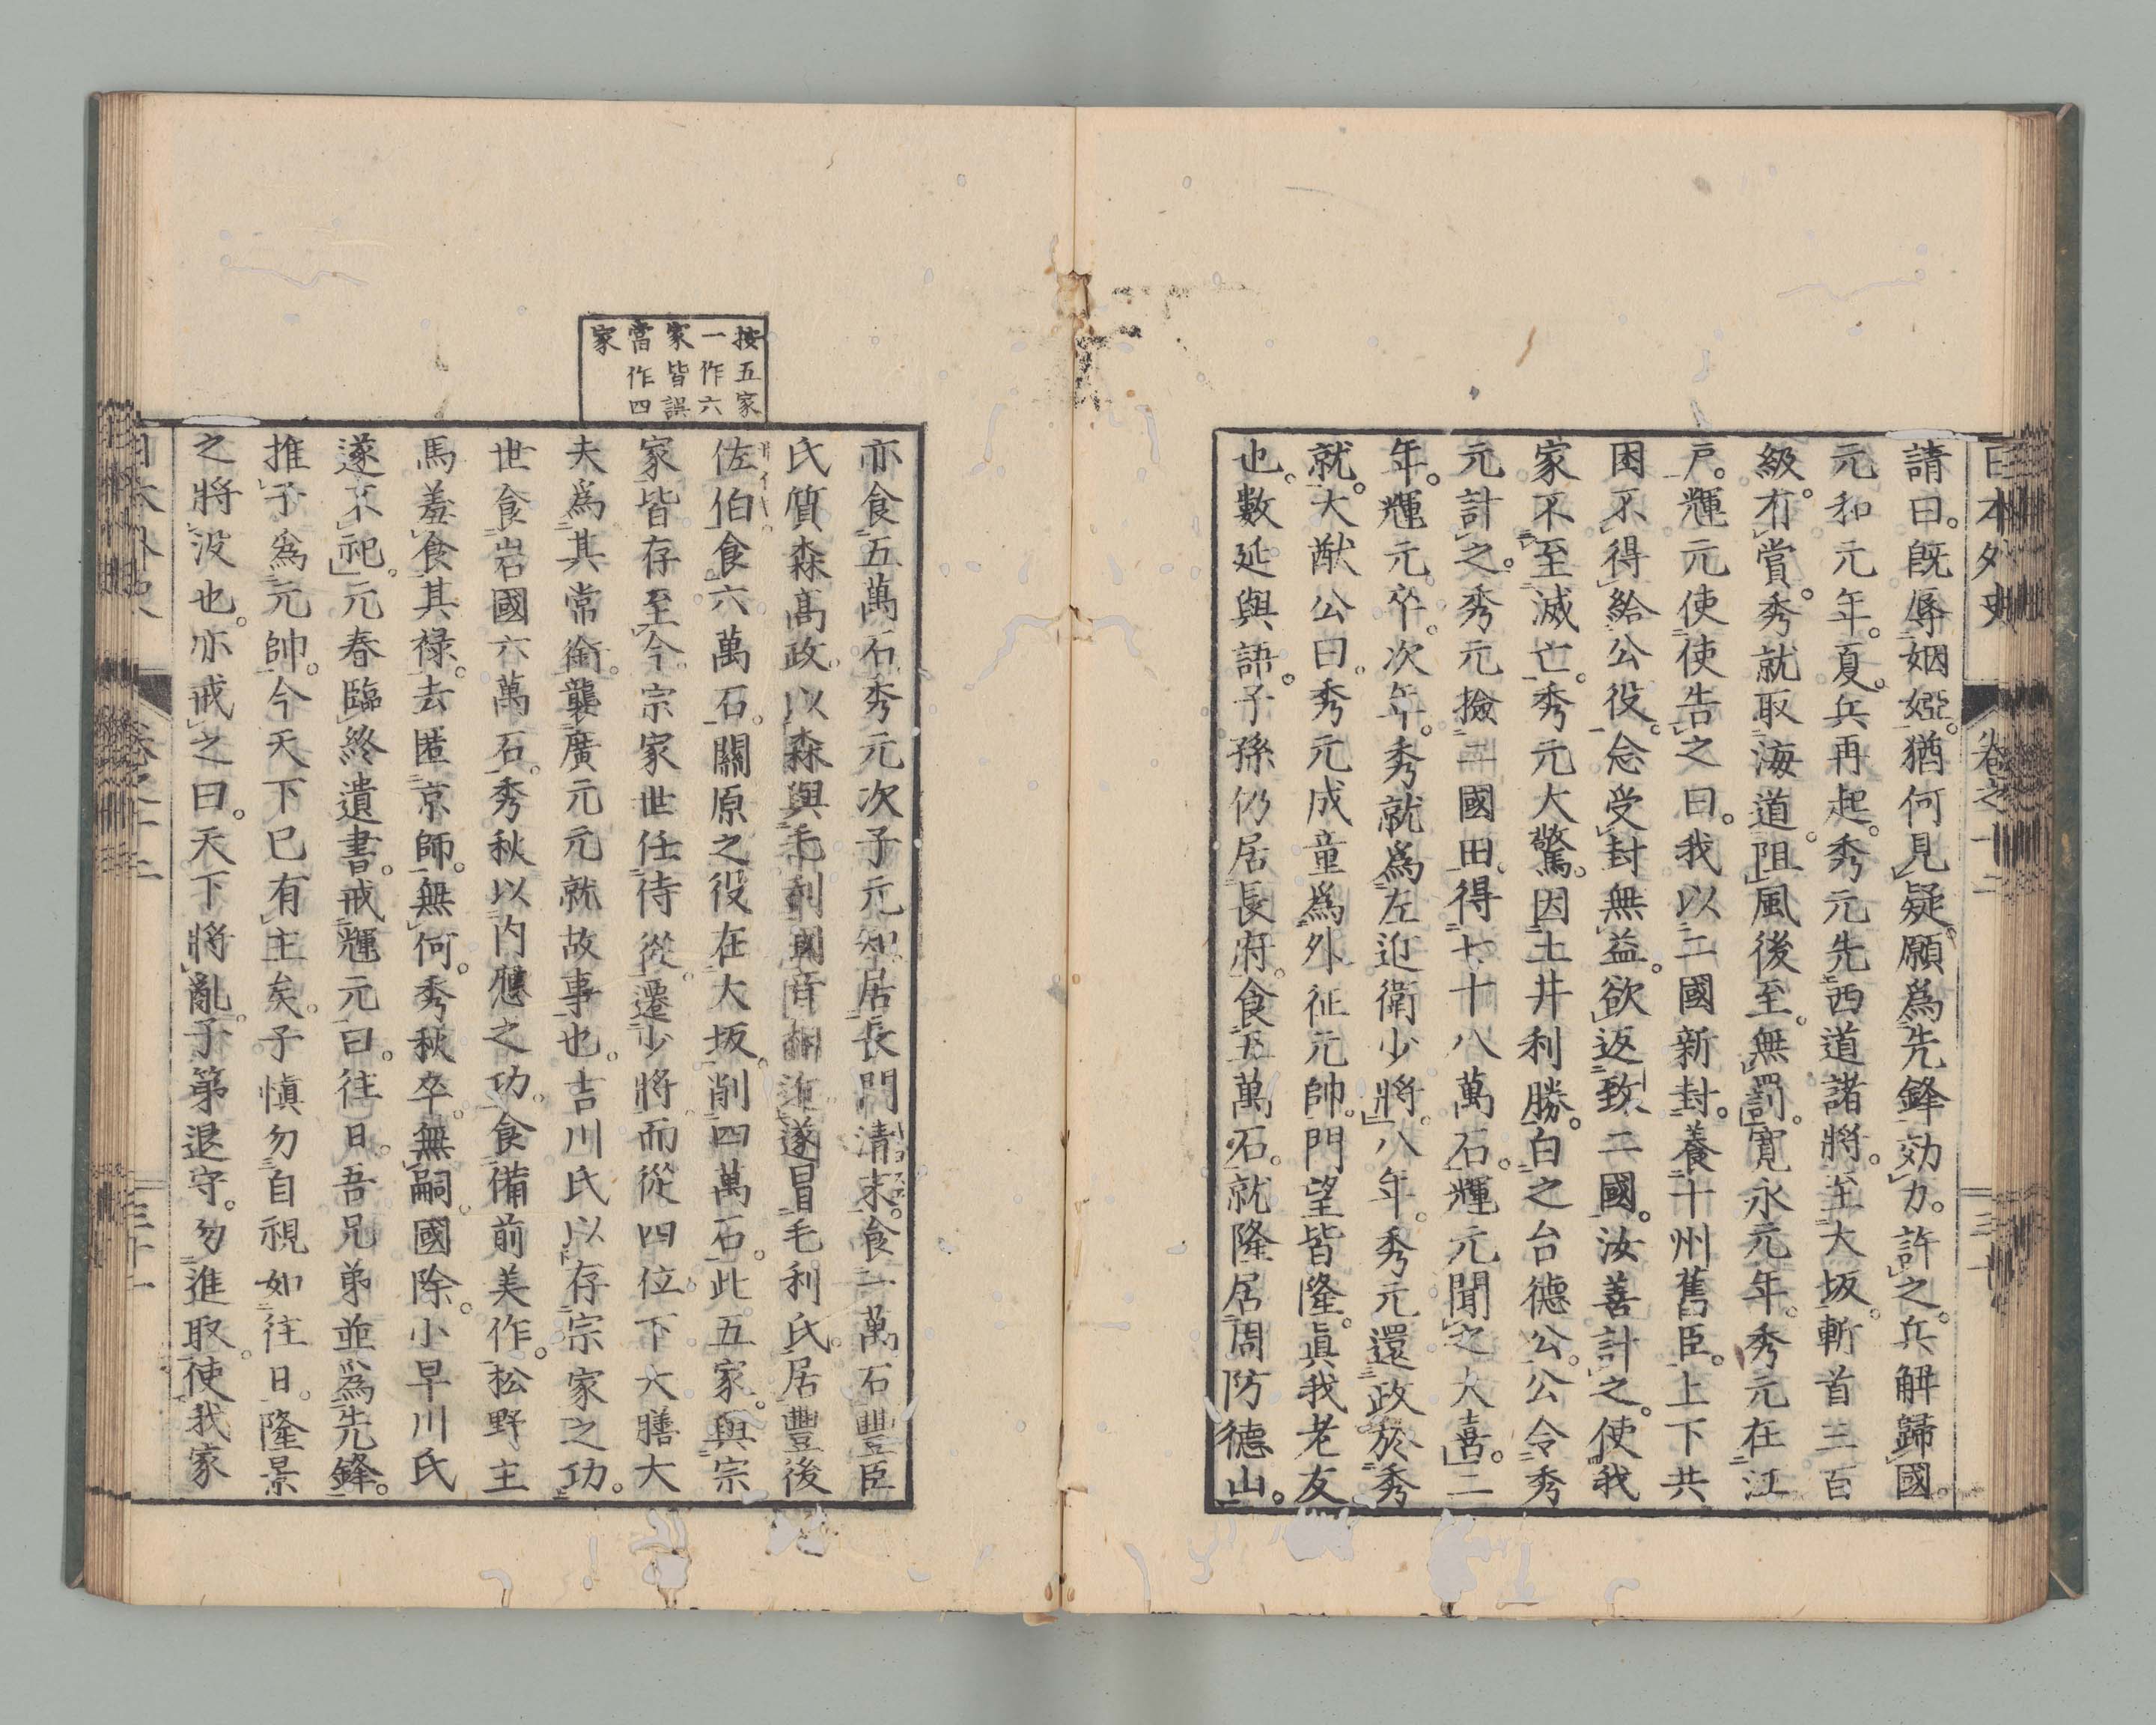 日本外史 卷之十二 三十
請曰。既辱姻婭。猶何見疑。願爲先鋒効力。許之。兵解歸國。
元和元年。夏。兵再起。秀元先西道諸將。至大坂。斬首三百
級。有賞。秀就取海道。阻風後至。無罰。寛永元年。秀元在江
戸。輝元使使告之曰。我以二國新封。養十州舊臣。上下共
困。不得給公役。念受封無益。欲返致二國。汝善計之。使我
家不至滅亡。秀元大驚。因土井利勝。白之台德公。公令秀
元計之。秀元撿二國田。得七十八萬石。輝元聞之大喜。二
年。輝元卒。次年。秀就爲左近衛少將。八年。秀元還政於秀
就。大猷公曰。秀元成童爲外征元帥。門望皆隆。眞我老友
也。數延與語。子孫仍居長府。食五萬石。就隆居周防德山。
按五家
一作六
家皆誤
當作四
家
亦食五萬石。秀元次子元知。居長門清末。食一萬石。豐臣
氏質森高政。以森與毛利國音相近。遂冒毛利氏。居豐後
佐伯。食六萬石。關原之役在大坂。削四萬石。此五家。與宗
家皆存至今。宗家世任侍從。遷少將。而從四位下大膳大
夫爲其常銜。襲廣元元就故事也。吉川氏以存宗家之功。
世食岩國六萬石。秀秋以内應之功。食備前美作。松野主
馬羞食其祿。去匿京師。無何。秀秋卒。無嗣。國除。小早川氏
遂不祀。元春臨終遺書。戒輝元曰。往日。吾兄弟並爲先鋒。
推子爲元帥。今天下已有主矣。子愼勿自視如往日。隆景
之將沒也。亦戒之曰。天下將亂。子第退守。勿進取。使我家
日本外史 卷之十二 三十一